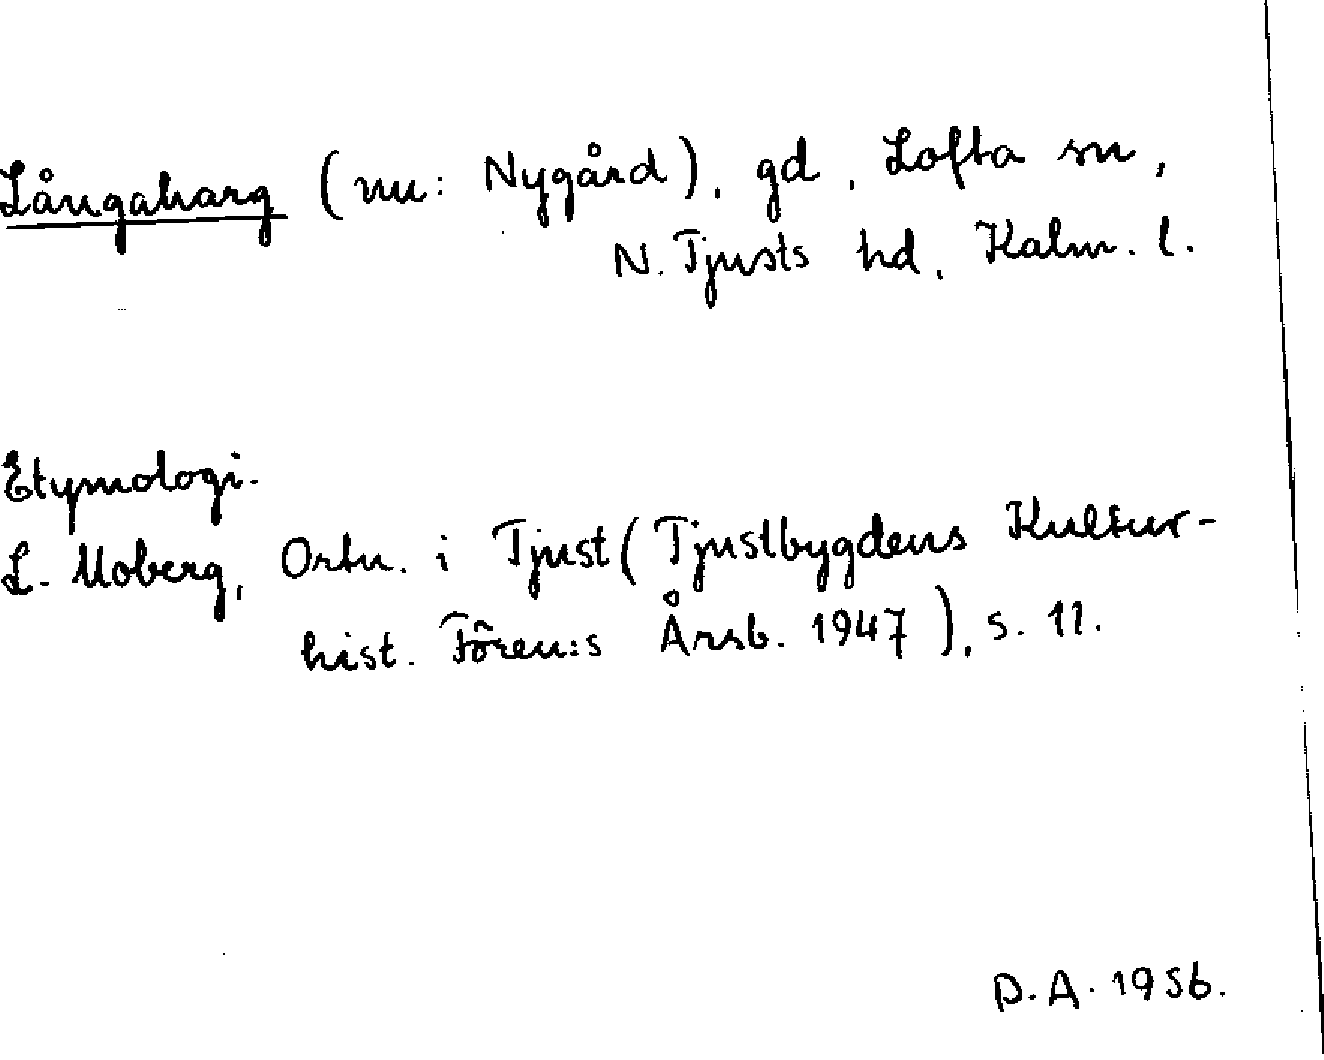 Långaharg (nu: Nygård), gd, Lofta sn,
N. Tjusts hd, Kalm. l.
Etymologi.
L. Moberg, Ortn. i Tjust (Tjustbygdens Kultur-
hist. Fören:s Årsb. 1947), s. 11.
D.A. 1956.